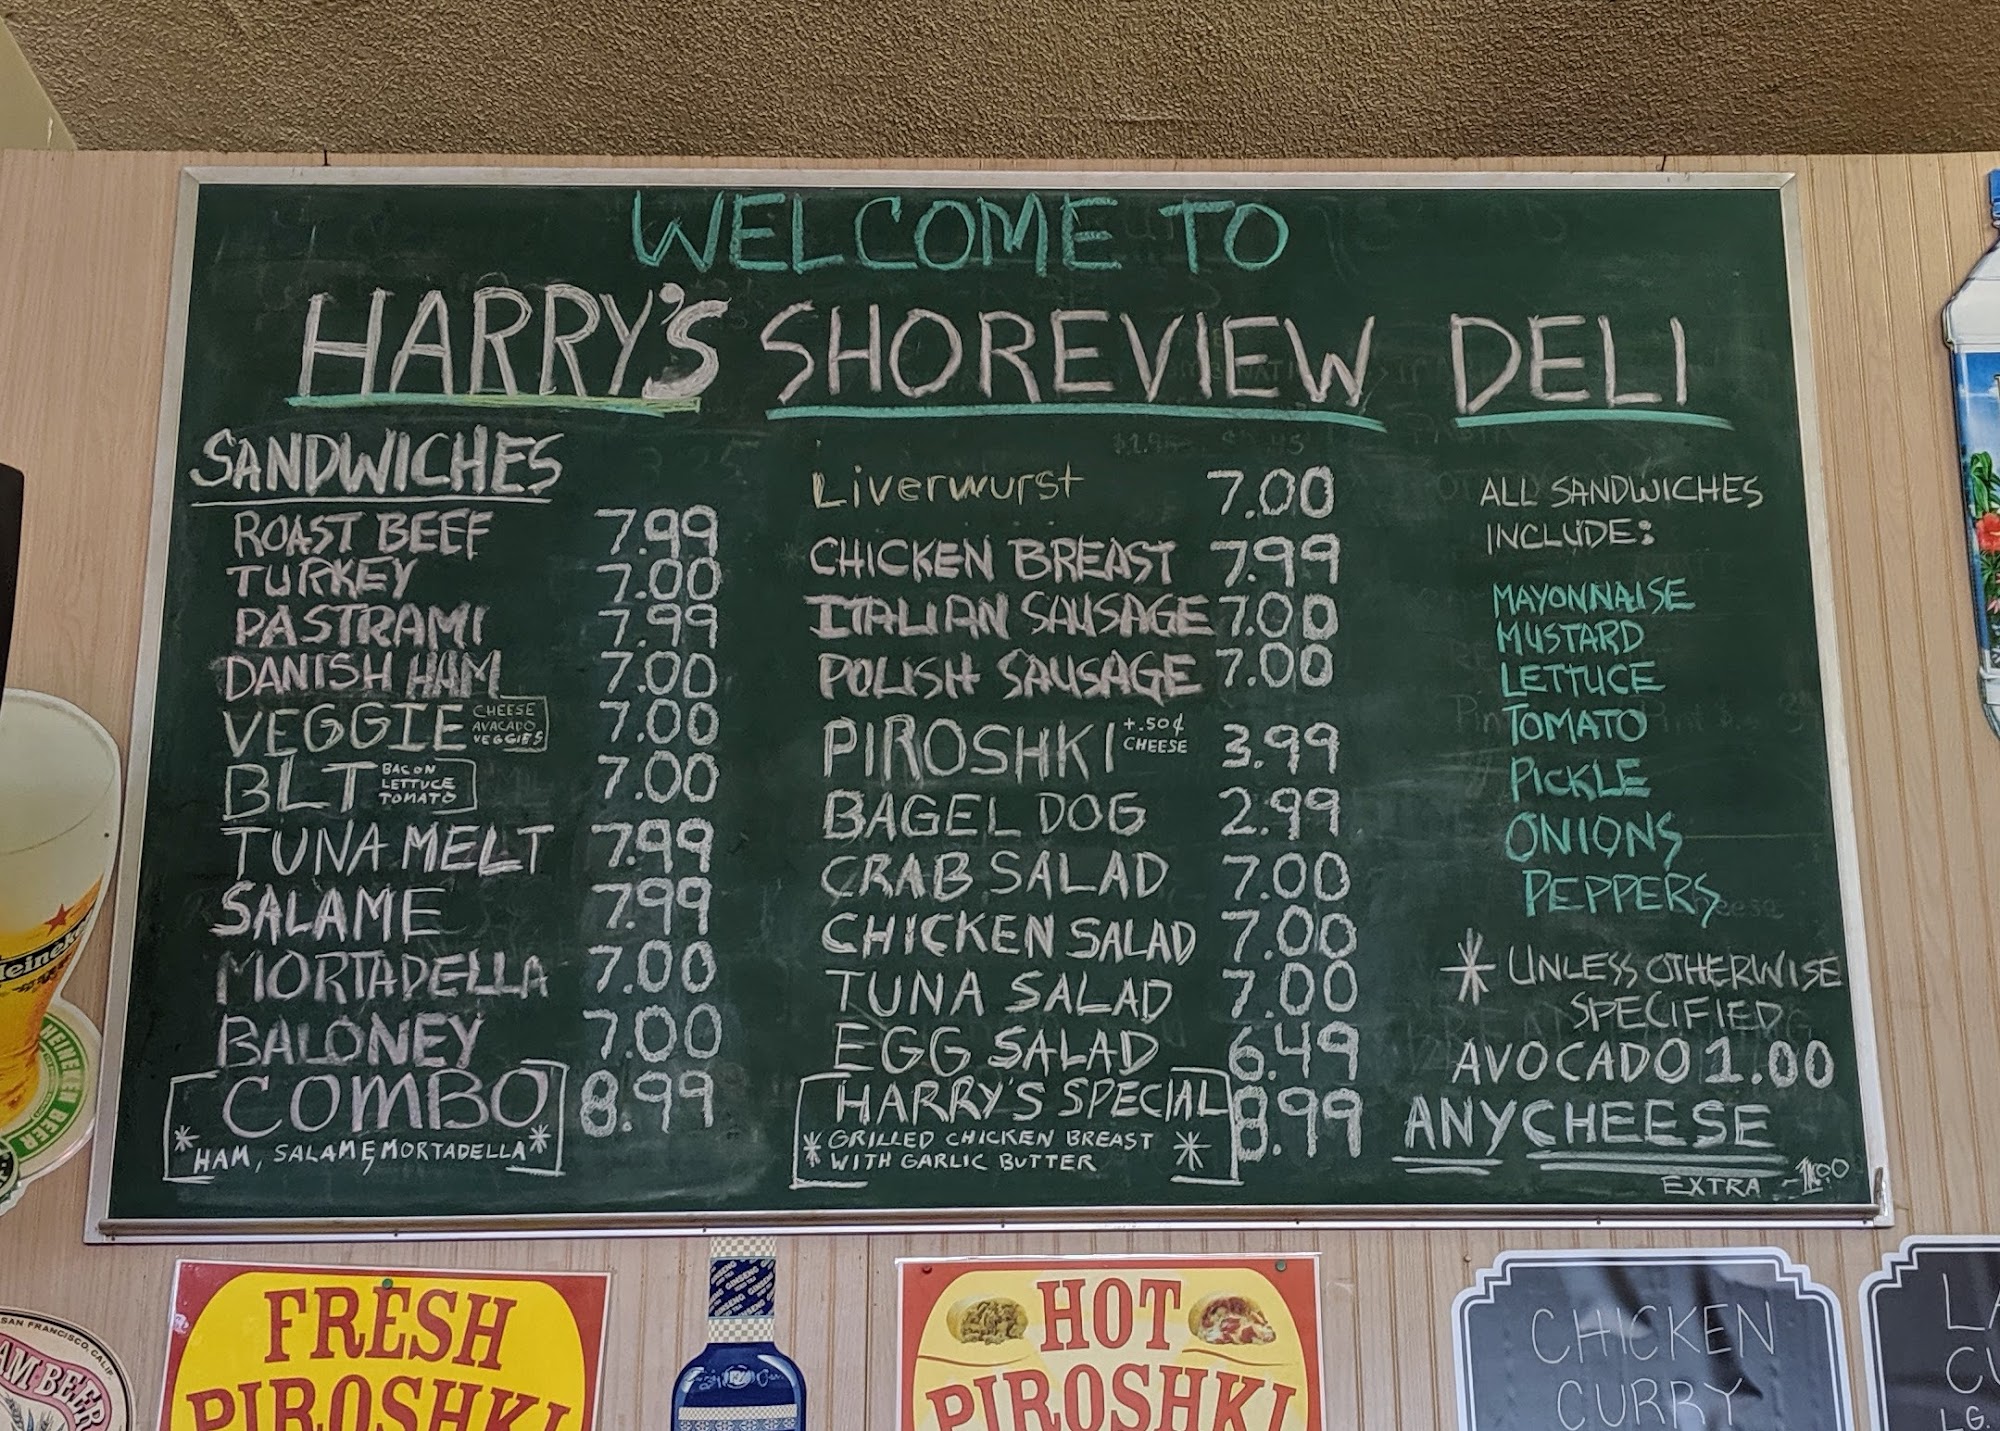 WELCOME TO
HARRY'S SHOREVIEW DELI
SANDWICHES
ROAST BEEF 7.99
TURKEY 7.00
PASTRAMI 7.99
DANISH HAM 7.00
VEGGIE CHEESE AVACADO VEGGIES 7.00
BLT BACON LETTUCE TOMATO 7.00
TUNA MELT 7.99
SALAME 7.99
MORTADELLA 7.00
BALONEY 7.00
COMBO 8.99
* HAM, SALAME, MORTADELLA *
Liverwurst 7.00
CHICKEN BREAST 7.99
ITALIAN SAUSAGE 7.00
POLISH SAUSAGE 7.00
PIROSHKI +.50¢ CHEESE 3.99
BAGEL DOG 2.99
CRAB SALAD 7.00
CHICKEN SALAD 7.00
TUNA SALAD 7.00
EGG SALAD 6.49
HARRY'S SPECIAL 8.99
* GRILLED CHICKEN BREAST *
WITH GARLIC BUTTER
ALL SANDWICHES
INCLUDE:
MAYONNAISE
MUSTARD
LETTUCE
TOMATO
PICKLE
ONIONS
PEPPERS
* UNLESS OTHERWISE
SPECIFIED
AVOCADO 1.00
ANY CHEESE
EXTRA -1.00
Heineken
HEINEKEN BEER
SAN FRANCISCO, CALIF.
BEER
FRESH
PIROSHKI
GINSENG
HOT
PIROSHKI
CHICKEN
CURRY
LG.